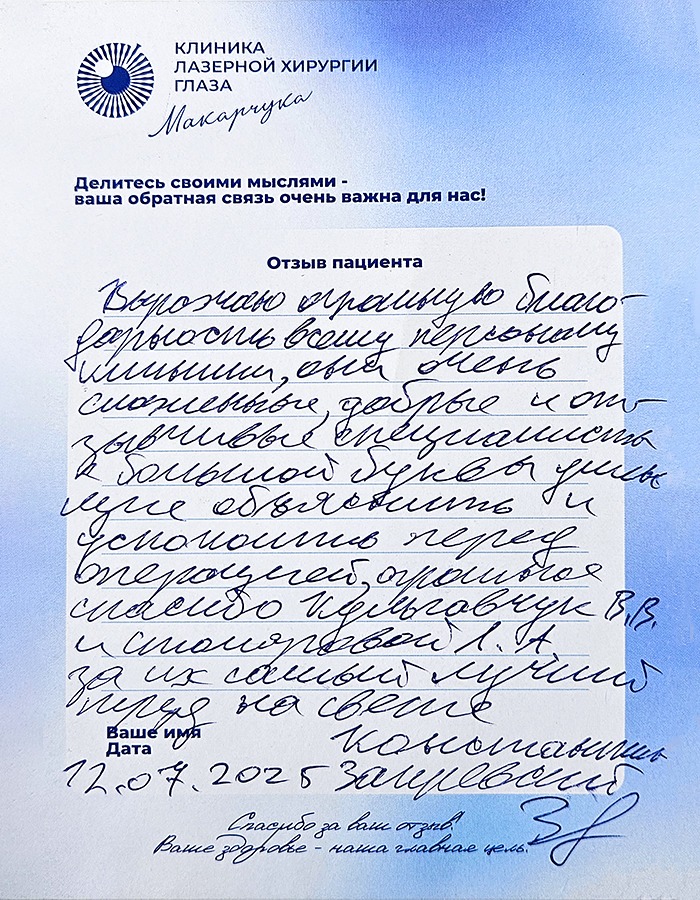 КЛИНИКА
ЛАЗЕРНОЙ ХИРУРГИИ
ГЛАЗА
Макарчука
Делитесь своими мыслями -
ваша обратная связь очень важна для нас!
Отзыв пациента
Выражаю огромную благо-
дарность всему персоналу
клиники, они очень
слаженные, добрые и от-
зывчивые специалисты
с большой буквы умею-
щие объяснить и
успокоить перед
операцией, огромное
спасибо Кульгавчук В.В.
и Столяровой Л. А.
за их самый лучший
труд на свете
Ваше имя
Константин
Дата
12.07.2025 Закревский
Спасибо за ваш отзыв!
Ваше здоровье - наша главная цель.